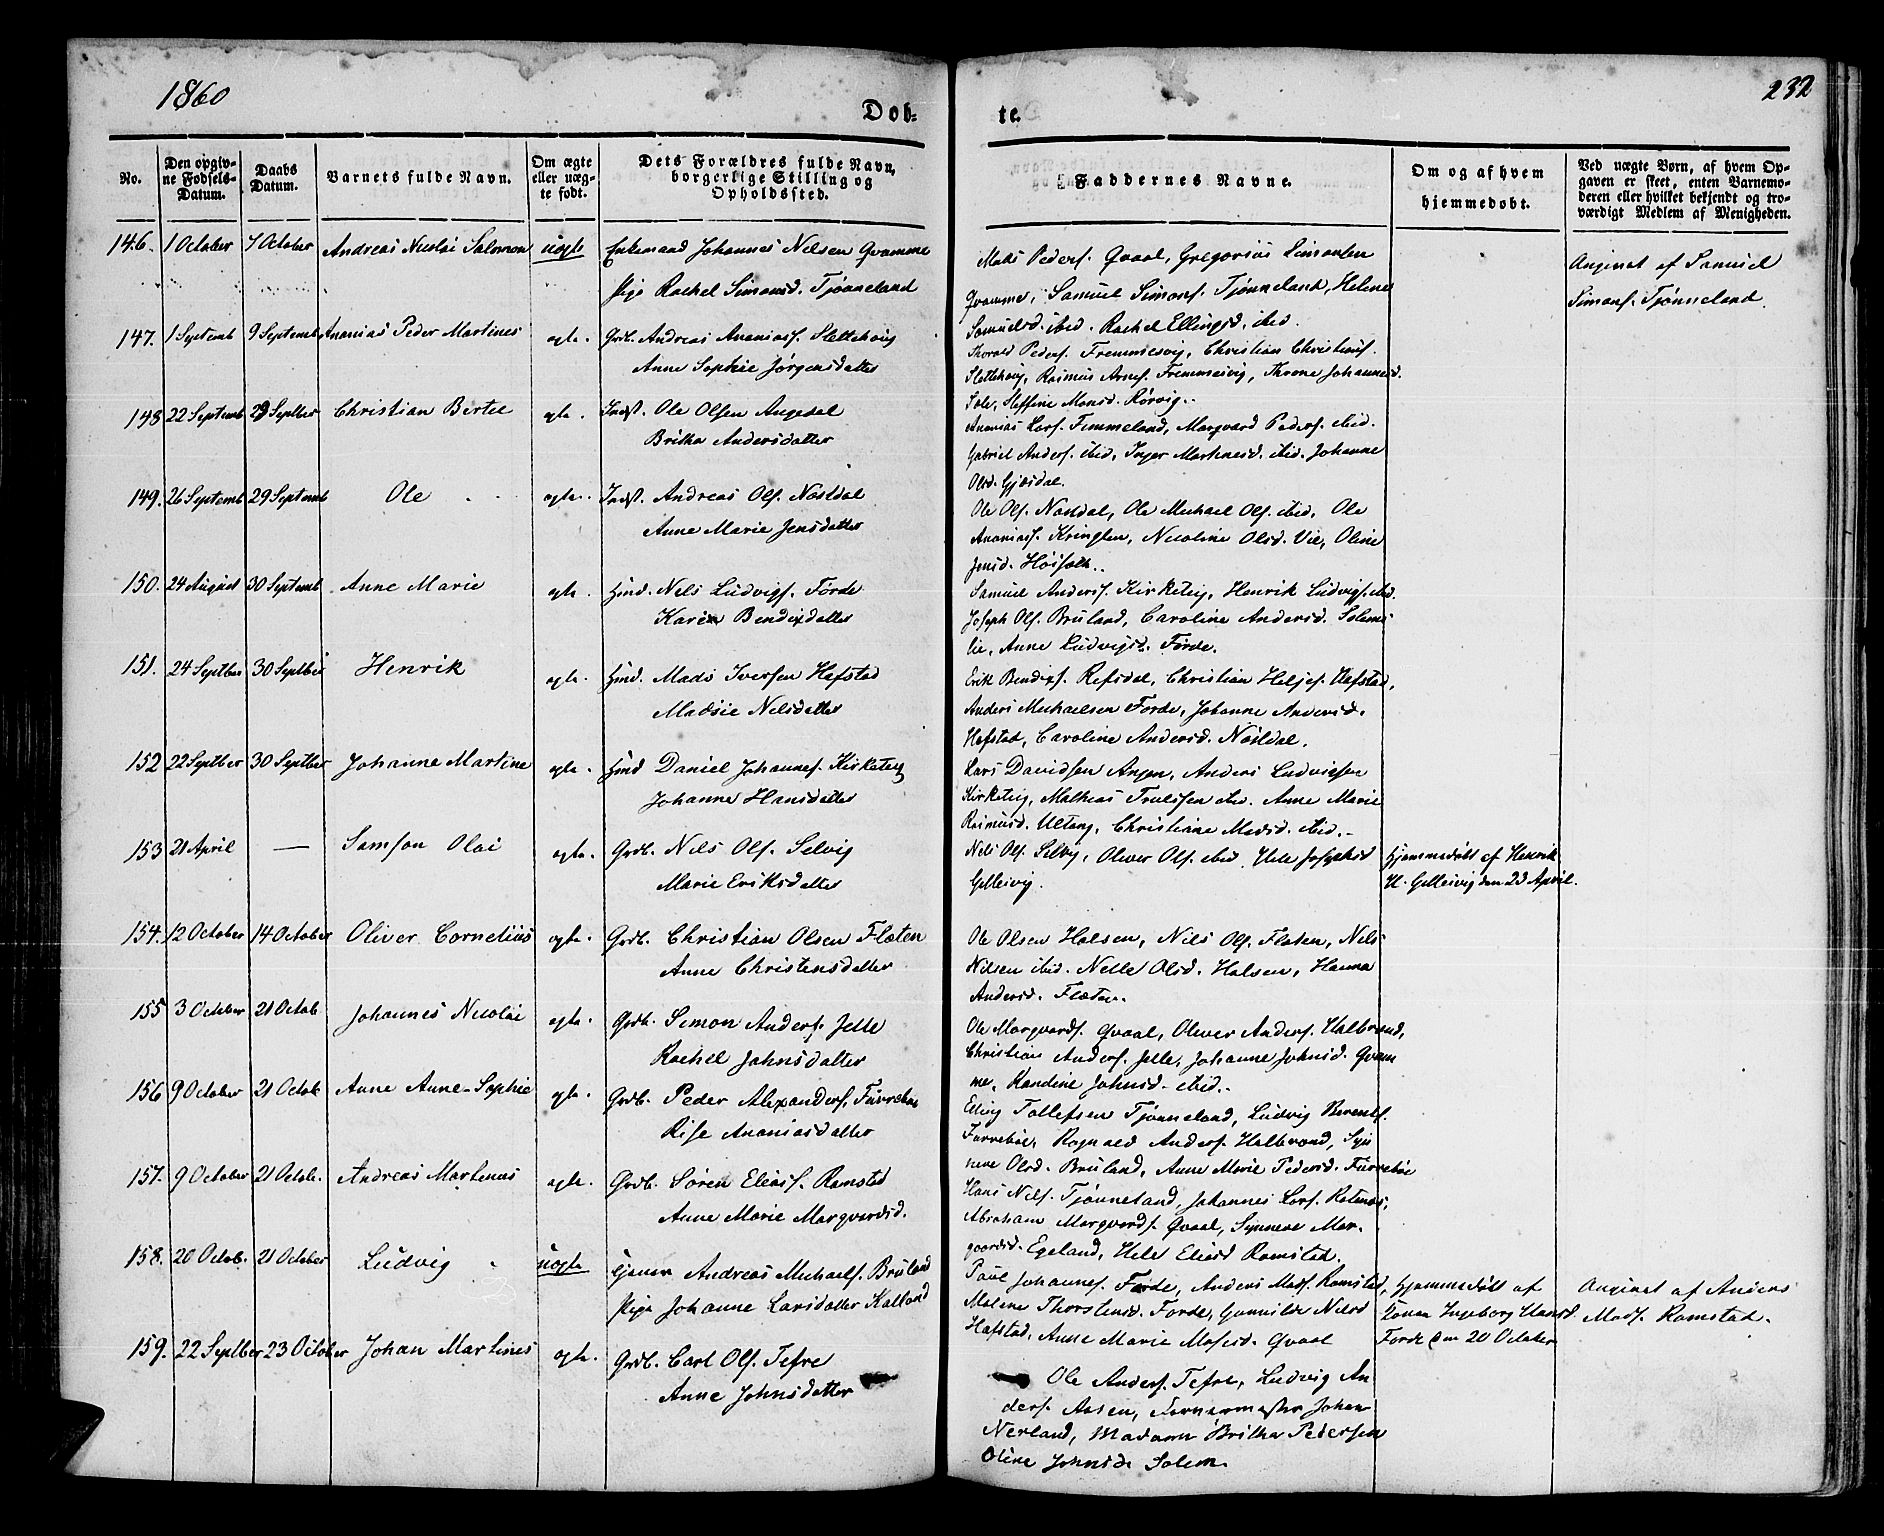 1860
232
Dob-
te.
No.
Den opgiv-
ne Fodsels-
Datum.
Daabs
Datum.
Varnets fulde Navn.
Om ægte
eller uæg-
te født.
Dets Forældres fulde Navn,
borgerlige Stilling og
Opholdssted.
Faddernes Navne.
Om og af hvem
hjemmedøbt.
Ved uægte Børn, af hvem Op-
gaven er skeet, enten Barnemo-
deren eller hvilket bekjendt og tro-
værdigt Medlem af Menigheden.
146. 1 October 7 October Andreas Nicolai Salomon uægte Enkemand Johannes Nilsen Qvamme
Pige Rachel Simonsd. Tjønneland
Mads Peders. Qvaal, Gregorius Simonsen
Qvamme, Samuel Simons. Tjønneland, Helene
Samuelsd. ibid. Rachel Ellingsd. ibid.
Angivet af Samuel
Simons. Tjønneland.
147. 1 Septemb 9 Septemb Ananias Peder Martines ægte. Grdb. Andreas Ananiass. Slettehaug
Anne Sophie Jørgensdatter
Thorald Peders. Fremmesvig, Christian Christians.
Slettehaug, Rasmus Arnes. Fremmesvig, Throne Johannesd.
Sole, Steffine Monsd. Rørvig.
148 22 Septemb 29 Septber Christian Bertel ægte. Indst. Ole Olsen Angedal
Britha Andersdatter
Ananias Lars. Fimmeland, Margvard Peders. ibid.
Gabriel Anders. ibid, Inger Martinesd. ibid. Johanne
Olsd. Gjæsdal.
149. 26 Septemb 29 Septemb Ole ægte. Indst. Andreas Ols. Nøstdal
Anne Marie Jensdatter
Ole Ols. Nøstdal, Ole Michael Ols. ibid, Ole
Ananiass. Kringlen, Nicoline Olsd. Vie, Oline
Jensd. Høisæth.
150. 24 August 30 Septemb Anne Marie ægte. Hmd. Nils Ludvigs. Førde
Karen Bendixdatter
Samuel Anders. Kirketeig, Henrik Ludvigs. ibid.
Joseph Ols. Bruland, Caroline Andersd. Solems
lie, Anne Ludvigsd. Førde.
151. 24 Septber 30 Septber Henrik ægte. Hmd. Mads Iversen Hafstad
Madsie Nilsdatter
Erik Bendixs. Refsdal, Christian Heljes. Hafstad,
Anders Michaelsen Førde, Johanne Andersd.
Hafstad, Caroline Andersd. Nøstdal.
152 22 Septber 30 Septber Johanne Martine ægte. Hmd Daniel Johannes. Kirketeig
Johanne Hansdatter
Lars Davidsen Angen, Anders Ludvigsen
Kirketeig, Mathias Trulssen ibid. Anne Marie
Rasmusd. Ultang, Christiane Madsd. ibid.
153 21 April — Samson Olai ægte. Grdb. Nils Ols. Selvig
Marie Eriksdatter
Nils Ols. Selvig, Oliver Ols. ibid. Hele Josephsd
Gjelleivig.
Hjemmedøbt af Henrik
H. Gjelleivig den 23 April.
154. 12 October 14 October Oliver Cornelius ægte. Grdb. Christian Olsen Flaten
Anne Christensdatter
Ole Olsen Halsen, Nils Ols. Flaten, Nils
Nilsen ibid. Nelle Olsd. Halsen, Hanna
Andersd. Flaten.
155 3 October 21 Octob. Johannes Nicolai ægte. Grdb. Simon Anders. Jelle
Rachel Johnsdatter
Ole Margvards. Qvaal, Oliver Anders. Halbrend,
Christian Anders. Jelle, Johanne Johnsd. Qvam
me, Randine Johnsd. ibid.
156 9 October 21 Octob. Anne Anne-Sophie ægte. Grdb. Peder Alexanders. Furreboe
Rise Ananiasdatter
Elling Tollefsen Tjønneland, Ludvig Berents.
Furreboe, Ragnald Anders. Halbrend, Syn
neve Olsd. Bruland, Anne Marie Pedersd. Furreboe
157. 9 October 21 Octob. Andreas Martinus ægte. Grdb. Søren Eliass. Ramstad
Anne Marie Margvardsd.
Hans Nils. Tjønneland, Johannes Lars. Ratenes,
Abraham Margvards. Qvaal, Synneve Mar-
gvardsd. Egeland, Hele Eliasd Ramstad.
158. 20 Octob. 21 October Ludvig uægte Tjener Andreas Michaels. Bruland
Pige Johanne Larsdatter Kalland
Paul Johannes. Førde, Anders Mads. Ramstad,
Malene Thorstensd. Førde, Gunnilde Nilsd
Hafstad, Anne Marie Mosesd. Qvaal
Hjemmedøbt af
Konen Ingeborg Hansd.
Førde den 20 October
Angivet af Anders
Mads. Ramstad.
159. 22 Septber 23 October Johan Martines ægte. Grdb. Carl Ols. Tefre
Anne Johnsdatter
Ole Anders. Tefre, Ludvig An
ders. Aasen, Farvermester Johan
Nerland, Madam Britha Pedersen
Oline Johnsd. Solem.